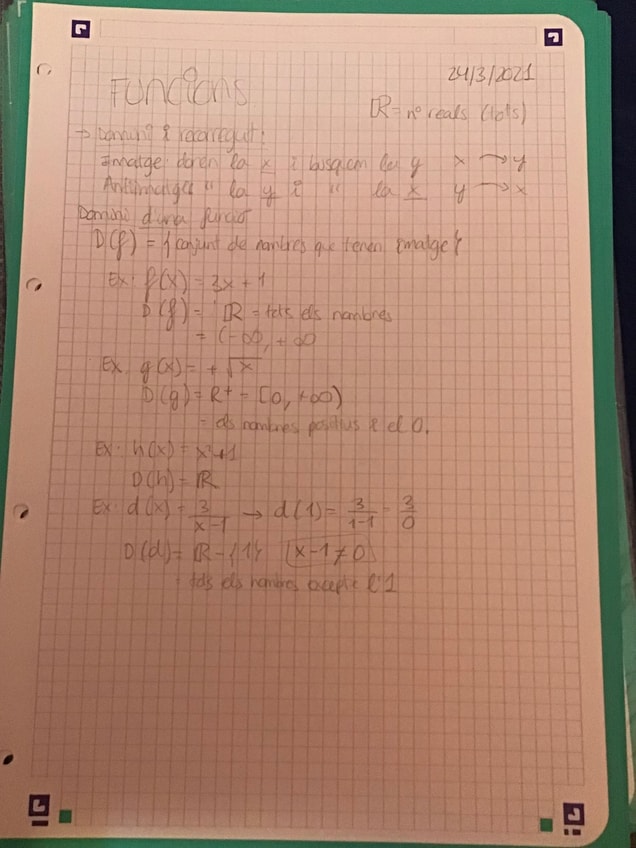 24/3/2021
Funcions
ℝ = nº reals (tots)
→ Domini i recorregut:
Imatge: donen la x i busquem la y x → y
Antiimatge " la y i " la x y → x
Domini d'una funció
D(f) = { conjunt de nombres que tenen imatge }
Ex: f(x) = 3x + 1
D(f) = ℝ = tots els nombres
= (-∞, +∞
Ex. g(x) = +√x
D(g) = R+ = [0, +∞)
= els nombres positius i el 0.
Ex: h(x) = x²+1
D(h) = ℝ
Ex: d(x) = 3/(x-1) → d(1) = 3/(1-1) = 3/0
D(d) = ℝ - {1} x-1≠0
= tots els nombres excepte l'1